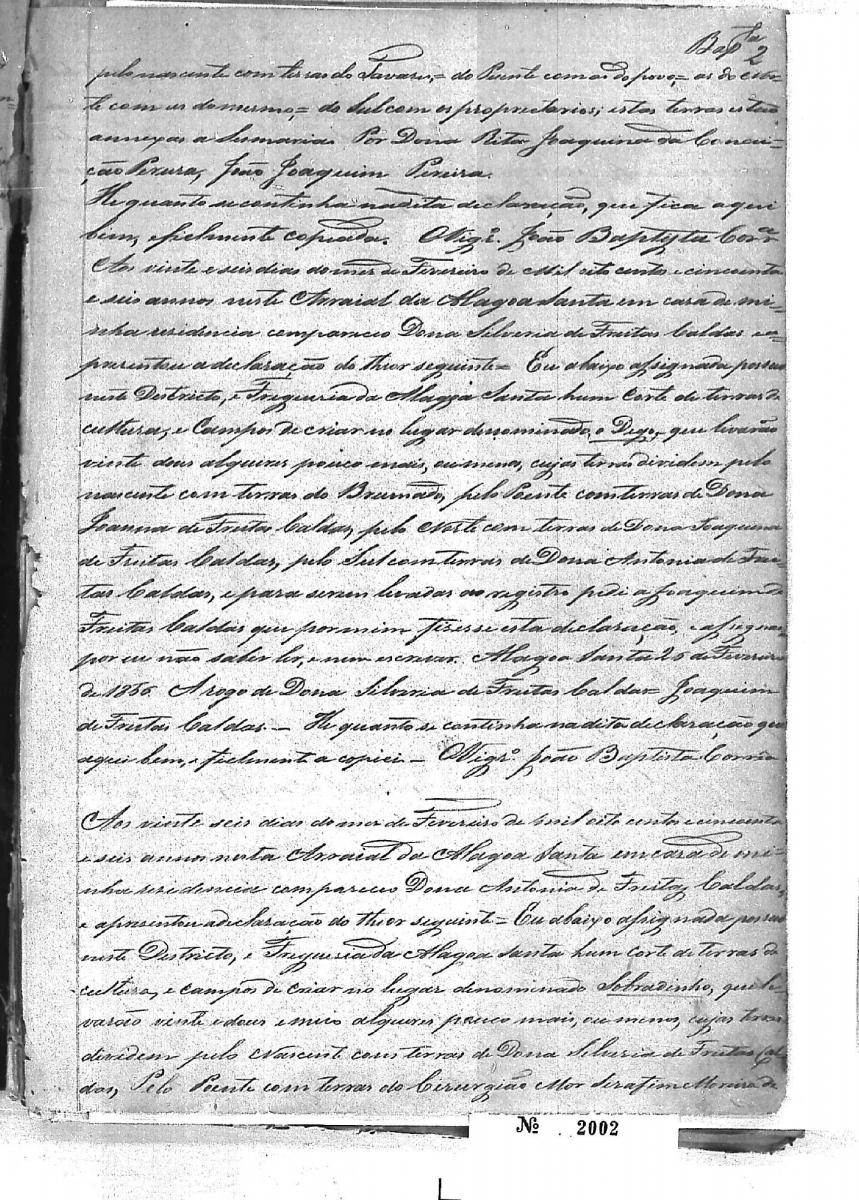 Bap.ta
2
pelo nascente com terras do Tavares,= do Poente com as do povo,= as do Nor-
te com as do mesmo,= do Sul com os proprietarios; estas terras estão
annexas a Sesmaria. Por Dona Rita Joaquina da Concei-
ção Pereira, João Joaquim Pereira.
He quanto se continha na dita declaração, que fica aqui
bem, e fielmente copiada. O Vigr.o João Baptysta Corr.a
Aos vinte e seis dias do mez de Fevereiro de Mil oito centos e cincoenta
e seis annos neste Arraial da Alagoa Santa em casa de mi-
nha residencia compareceo Dona Silveria de Freitas Caldas e a-
presentou a declaração do theor seguinte= Eu abaixo assignada possuo
neste Districto, e Freguezia da Alagoa Santa hum corte de terras de
cultura, e Campos de criar no lugar denominado, o Dego, que levarão
vinte dous alqueires pouco mais, ou menos, cujas terras dividem pelo
nascente com terras do Brumado, pelo Poente com terras de Dona
Joanna de Freitas Caldas, pelo Norte com terras de Dona Joaquina
de Freitas Caldas, pelo Sul com terras de Dona Antonia de Frei-
tas Caldas, e para serem levadas ao registro pedi a Joaquim de
Freitas Caldas que por mim fizesse esta declaração, e assignas-
por eu não saber ler, e nem escrever. Alagoa Santa 26 de Fevereiro
de 1856. A rogo de Dona Silveria de Freitas Caldas= Joaquim
de Freitas Caldas.— He quanto se continha na dita declaração que
aqui bem, e fielmente a copiei— O Vigr.o João Baptista Corrêa
Aos vinte seis dias do mez de Fevereiro de mil oito centos e cincoenta
e seis annos nesta Arraial da Alagoa Santa em casa de mi-
nha residencia compareceo Dona Antonia de Freitas Caldas,
e apresentou a declaração do theor seguinte= Eu abaixo assignada possuo
neste Districto, e Freguezia da Alagoa Santa hum corte de terras de
cultura, e campos de criar no lugar denominado Sobradinho, que le-
varão vinte e dous e meio alqueres pouco mais, ou menos, cujas terras
dividem pelo Nascente com terras de Dona Silveria de Freitas Cal-
das, Pelo Poente com terras do Cirurgião Mor Serafim Moreira de
Nº 2002